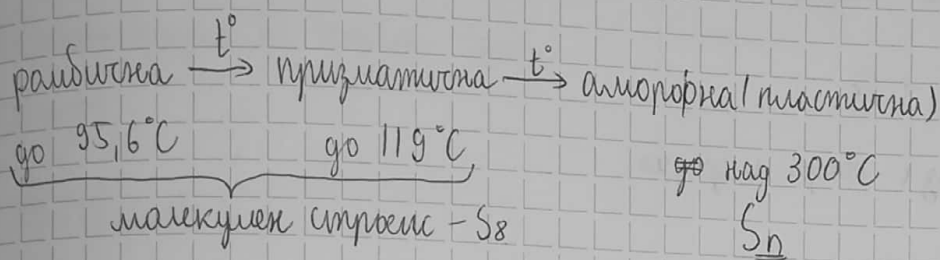 ромбична t° → призматична t° → аморфна (пластична)
до 95,6°C до 119°C до над 300°C
молекулен строеж – S8 Sn